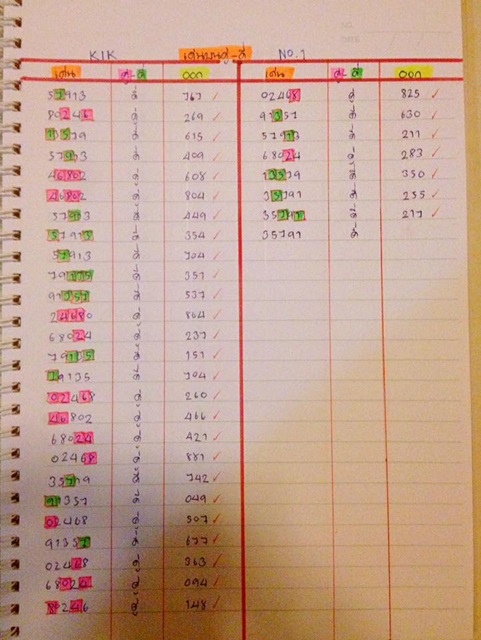 KIK เด่นบนคู่-คี่ NO.1
เด่น คู่-คี่ ออก เด่น คู่-คี่ ออก
57913 คี่ 767 02468 คู่ 825
80246 คู่ 269 91357 คี่ 630
13579 คี่ 615 57913 คี่ 211
57913 คี่ 409 68024 คู่ 283
46802 คู่ 608 13579 คี่ 350
46802 คู่ 804 35791 คี่ 255
57913 คี่ 449 35791 คี่ 217
57913 คี่ 354 35791 คี่
57913 คี่ 704
79135 คี่ 351
91357 คี่ 537
24680 คู่ 864
68024 คู่ 237
79135 คี่ 151
79135 คี่ 704
02468 คู่ 260
46802 คู่ 466
68024 คู่ 421
02468 คู่ 881
35719 คี่ 742
91357 คี่ 049
02468 คู่ 507
91357 คี่ 677
02468 คู่ 363
68024 คู่ 094
80246 คู่ 148